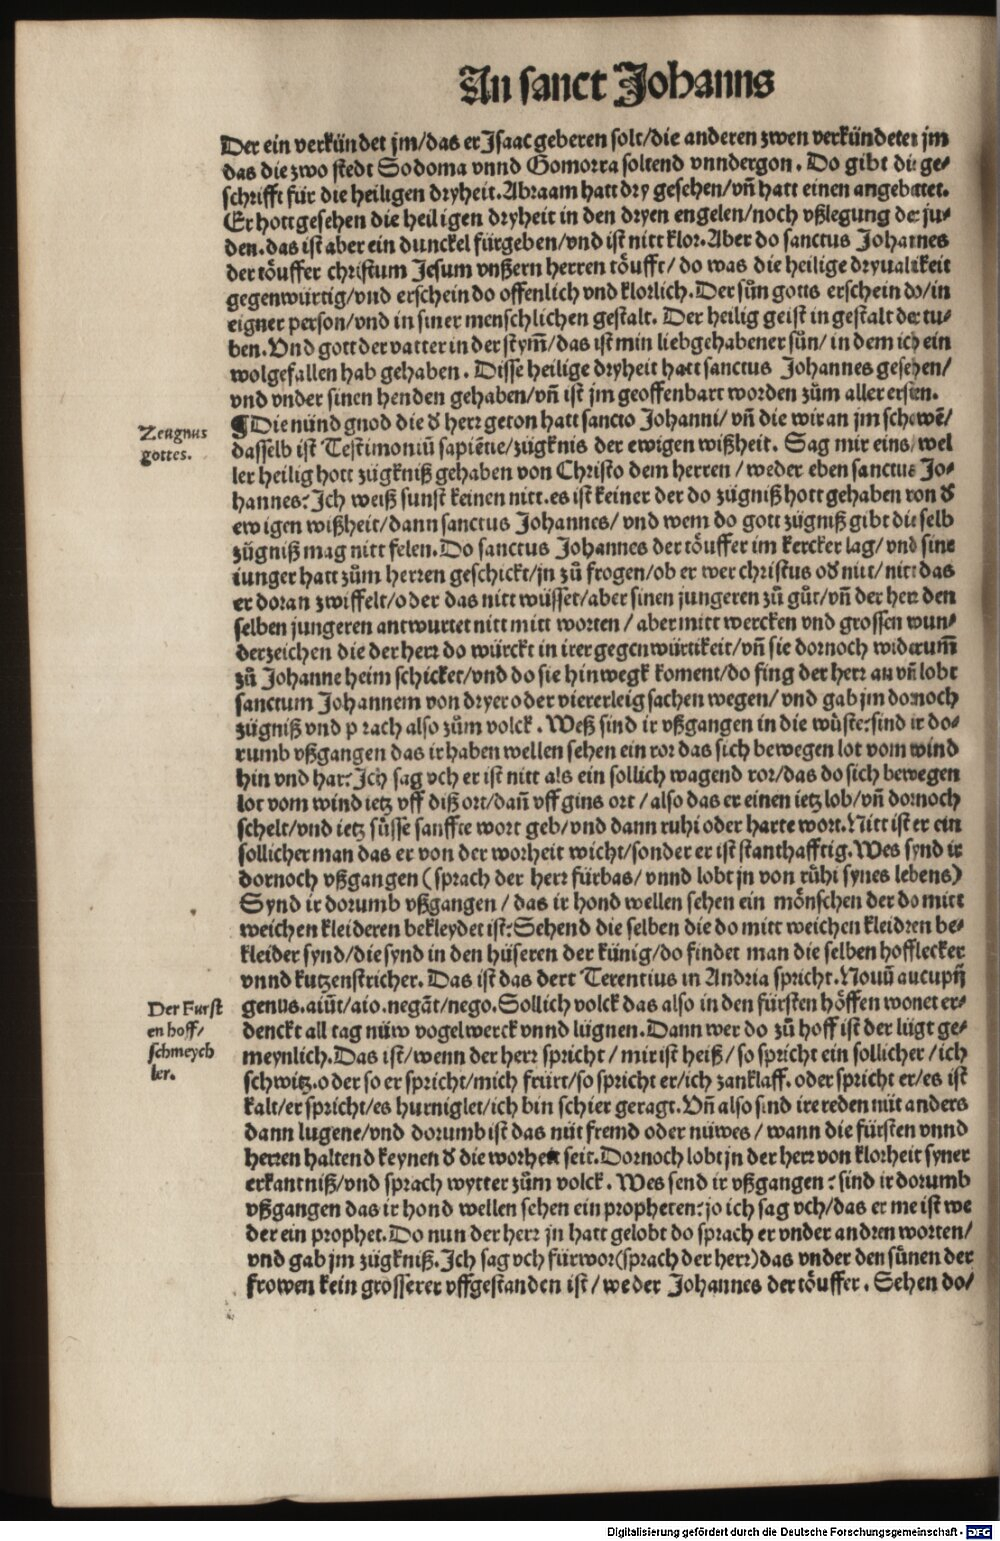 An sanct Johanns
Der ein verkündet jm/das er Jsaac geberen solt/die anderen zwen verkündeten jm
das die zwo stedt Sodoma vnnd Gomorra soltend vnndergon. Do gibt die ge-
schrifft für die heiligen dryheit. Abraam hatt dry gesehen/vñ hatt einen angebattet.
Er hott gesehen die heiligen dryheit in den dryen engelen/noch vßlegung der ju-
den. das ist aber ein dunckel fürgeben/vnd ist nitt klor. Aber do sanctus Johannes
der töuffer christum Jesum vnßern herren töufft/ do was die heilige dryualtikeit
gegenwürtig/vnd erschein do offenlich vnd klorlich. Der sün gotts erschein do/in
eigner person/vnd in siner menschlichen gestalt. Der heilig geist in gestalt der tu-
ben. Vnd gott der vatter in der stym̃/das ist min liebgehabener sün/ in dem ich ein
wolgefallen hab gehaben. Disse heilige dryheit hatt sanctus Johannes gesehen/
vnd vnder sinen henden gehaben/vñ ist jm geoffenbart worden zům aller ersten.
Zeugnus
gottes.
¶Die nünd gnod die d̕ herr geton hatt sancto Johanni/ vñ die wir an jm schowẽ/
dasselb ist Testimoniũ sapiẽtie/zügknis der ewigen wißheit. Sag mir eins/wel
ler heilig hott zügkniß gehaben von Christo dem herren/weder eben sanctus Jo-
hannes? Ich weiß sunst keinen nitt. es ist keiner der do zügniß hott gehaben von d̕
ewigen wißheit/dann sanctus Johannes/ vnd wem do gott zügniß gibt die selb
zügniß mag nitt felen. Do sanctus Johannes der töuffer im kercker lag/ vnd sine
iunger hatt zům herren geschickt/jn zů frogen/ob er wer christus od̕ nitt/nitt das
er doran zwiffelt/oder das nitt wüsset/aber sinen jungeren zů gůt/vñ der herr den
selben jungeren antwurtet nitt mitt worten/ aber mitt wercken vnd grossen wun-
derzeichen die der herr do würckt in irer gegenwürtikeit/vñ sie dornoch widerum̃
zů Johanne heim schicket/vnd do sie hinwegk koment/do fing der herr an vñ lobt
sanctum Johannem von dryer oder viererleig sachen wegen/ vnd gab jm dornoch
zügniß vnd sprach also zům volck. Weß sind ir vßgangen in die wüste? sind ir do-
rumb vßgangen das ir haben wellen sehen ein ror das sich bewegen lot vom wind
hin vnd har? Ich sag vch er ist nitt als ein sollich wagend ror/das do sich bewegen
lot vom wind ietz vff diß ort/dañ vff gins ort/also das er einen ietz lob/vñ dornoch
schelt/vnd ietz süsse sanffte wort geb/vnd dann ruhi oder harte wort. Nitt ist er ein
sollicher man das er von der worheit wicht/sonder er ist standhafftig. Wes synd ir
dornoch vßgangen (sprach der herr fürbas/ vnnd lobt jn von rühi synes lebens)
Synd ir dorumb vßgangen/ das ir hond wellen sehen ein mönschen der do mitt
weichen kleideren bekleydet ist? Sehend die selben die do mitt weichen kleidren be-
kleider synd/die synd in den hüseren der künig/do findet man die selben hofflecker
vnnd kutzenstricher. Das ist das dert Terentius in Andria spricht. Nouũ aucupij
Der Furst
en hoff/
schmeych
ler.
genus. aiũt/aio. negãt/nego. Sollich volck das also in den fürsten höffen wonet er-
denckt all tag nüw vogelwerck vnnd lügnen. Dann wer do zů hoff ist der lügt ge-
meynlich. Das ist/wenn der herr spricht/mir ist heiß/so spricht ein sollicher/ich
schwitz. oder so er spricht/mich frürt/so spricht er/ich zanklaff. oder spricht er/es ist
kalt/er spricht/es hurniglet/ich bin schier geragt. Vñ also sind ire reden nüt anders
dann lugene/vnd dorumb ist das nüt fremd oder nüwes/ wann die fürsten vnnd
herren haltend keynen d̕ die worheit seit. Dornoch lobt jn der herr von klorheit syner
erkantniß/vnd sprach wytter zům volck. Wes send ir vßgangen? sind ir dorumb
vßgangen das ir hond wellen sehen ein propheten? jo ich sag vch/das er me ist we
der ein prophet. Do nun der herr jn hatt gelobt do sprach er vnder andren worten/
vnd gab jm zügkniß. Ich sag vch fürwor(sprach der herr)das vnder den sünen der
frowen kein grösserer vffgestanden ist/weder Johannes der töuffer. Sehen do/
Digitalisierung gefördert durch die Deutsche Forschungsgemeinschaft - DFG